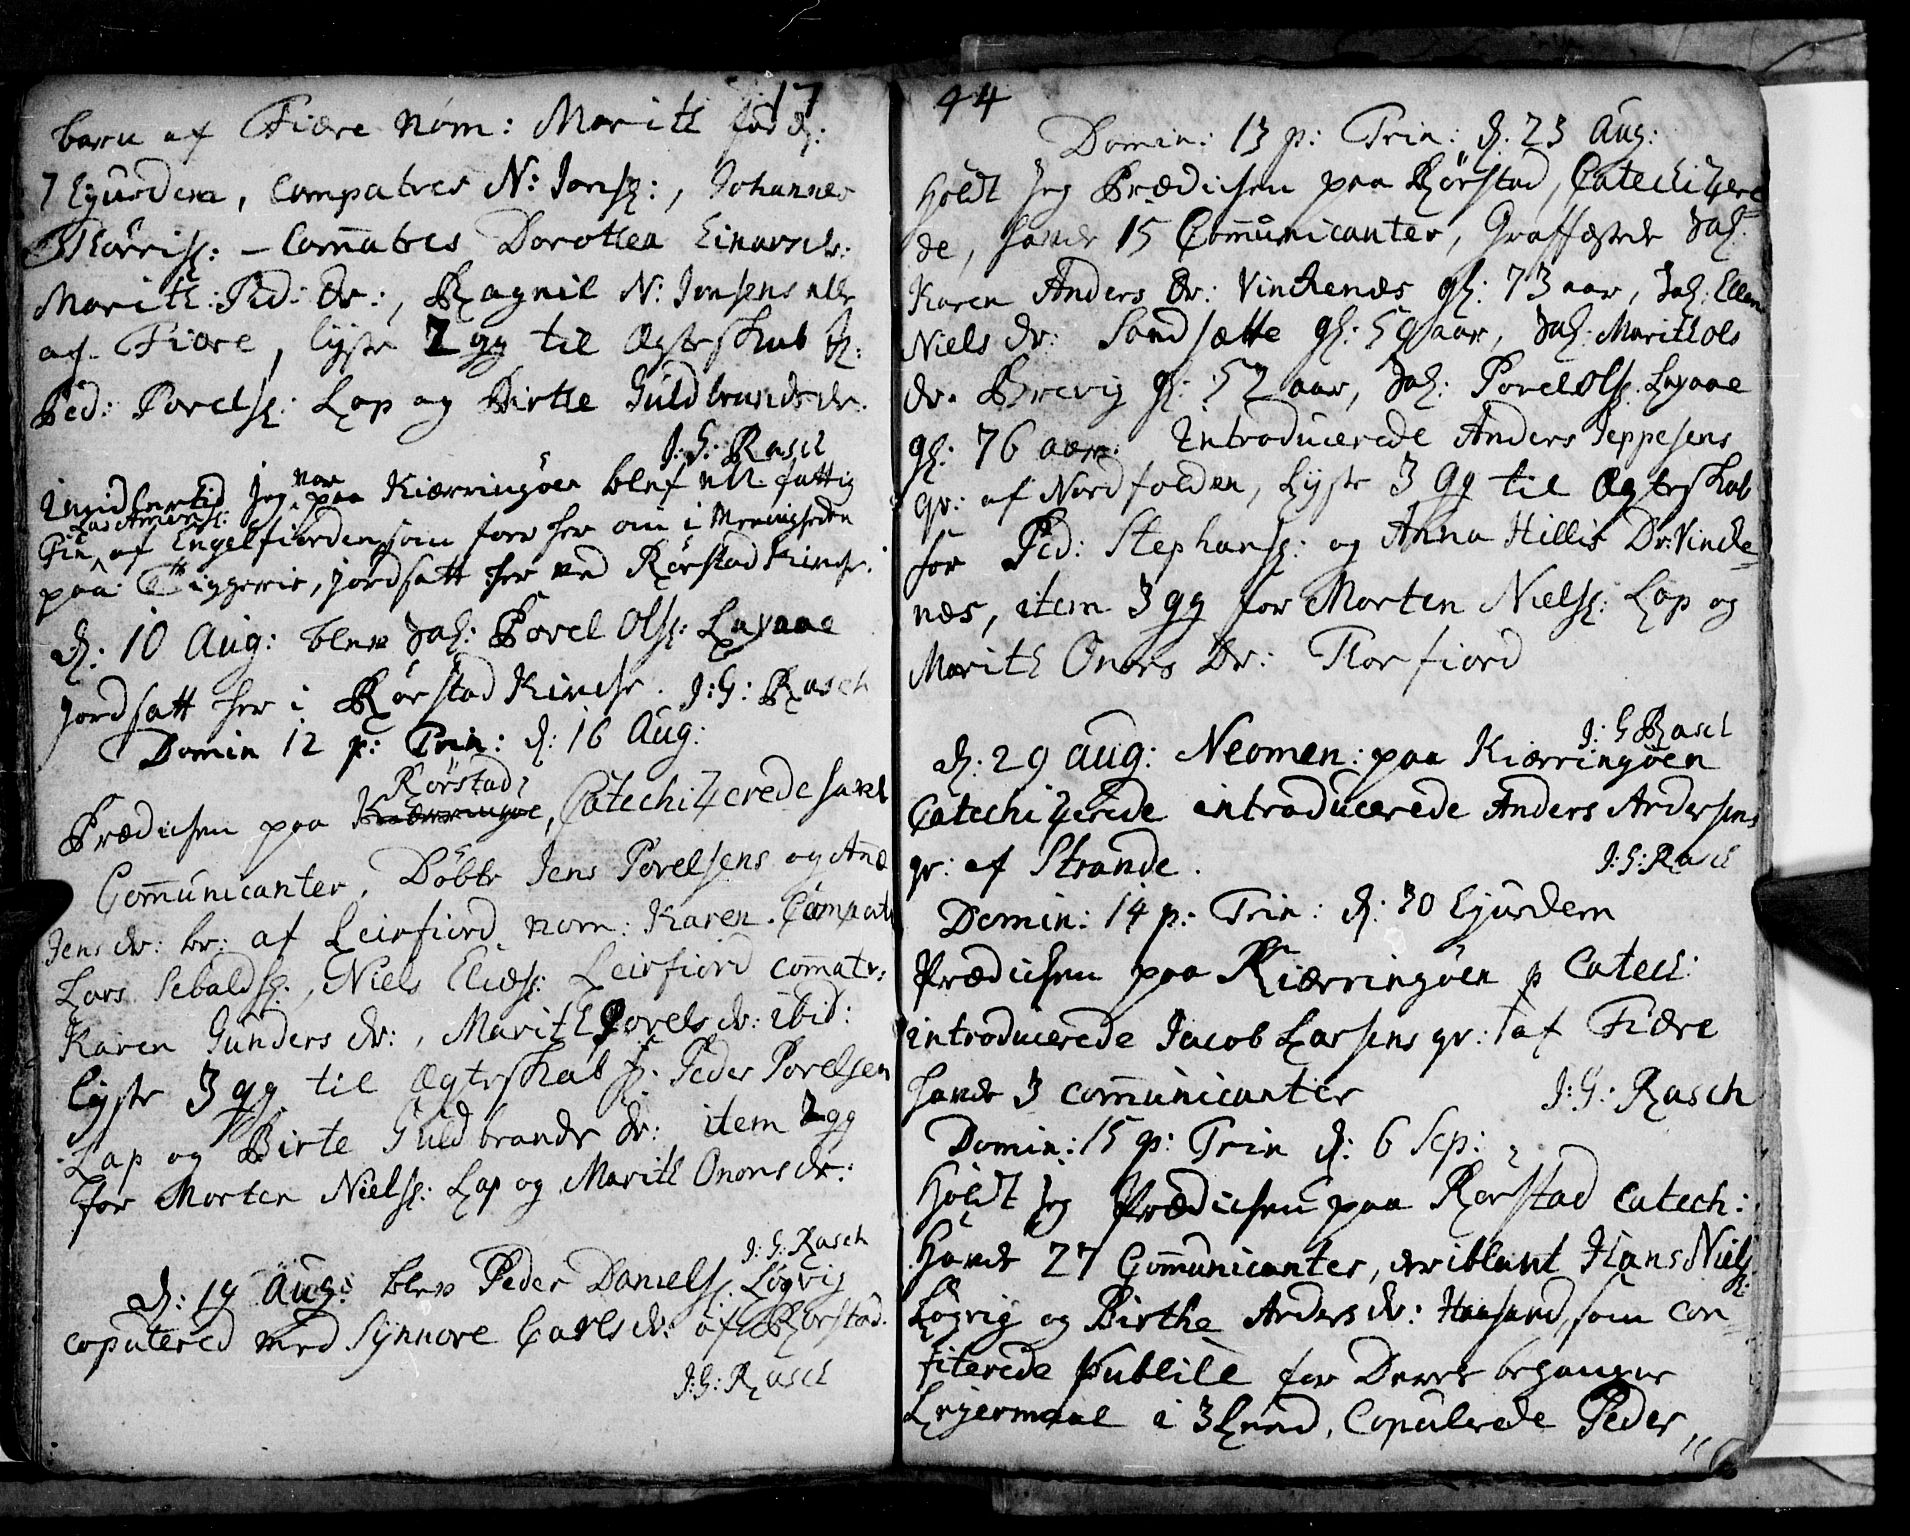 17
barn af Fiære nom: Marith fød d:
7 hujusdem, Compatres N: Jonss:, Johannes
Thörriss: – Comatres Dorothea Einarsdr:
Marith: Ped: dr:, Ragnil N: Jonsens alle
af Fiære, lyste 2 gg til Ægteskab f:
Ped: Povelss: Lap og Birthe Guldbrandsdr.
J: G: Rasch
Imidlertid jeg var paa Kiærringöen blef en fattig
Lars
Fin af Engelfiorden som foer her om i Meenigheden
paa Tiggerie, jordsatt her ved Rörstad Kirche.
d: 10 Aug: blev Sal: Povel Olss: Laxaae
jordsatt her i Rörstad Kirche. J: G: Rasch
Domin 12 p: Trin: d: 16 Aug:
Rörstad
Prædichen paa Kiærringöe, Catechizerede havde
Communicanter, Döbte Jens Povelsens og Anne
Jens dr: br: af Leirfiord nom: Karen. Compatr
Lars Sebaldss:, Niels Eliæss: Leirfiord comatr:
Karen Gunders dr:, Marith Povels dr: ibid:
lyste 3 gg til Ægteskab f: Peder Povelsen
Lap og Birte Guldbrands dr: item 2 gg
for Morten Nielss: Lap og Marith Onors dr:
J: G: Rasch
d: 19 Aug: blev Peder Danielss: Løgvig
copulered med Synnove Carls dr: af Rörstad.
J: G: Rasch
44
Domin: 13 p: Trin: d: 23 Aug:
Holdt jeg Prædichen paa Rörstad, Catechizere
de, havde 15 Communicanter, Graffæstede Sal:
Karen Anders dr: Vinckenes gl: 73 aar, Sal: Ellen
Niels dr: Sandsætte gl: 59 aar, Sal: Marith Ols
dr. Brevig gl: 52 aar, Sal: Povel Olss: Laxaae
gl: 76 aar. Introducerede Anders Jeppesens
qv: af Nordfolden, Lyste 3 gg til Ægteskab
for Ped: Stephanss: og Anna Hillis Dr: Vincke=
næs, item 3 gg for Morten Nielss: Lap og
Marith Onors Dr: Thorfiord
J: G Rasch
d: 29 Aug: Neomen: paa Kiærringöen
Catechizerede introducerede Anders Andersens
qv: af Strande.
J: G: Rasch
Domin: 14 p: Trin: d: 30 hjusdem
Prædichen paa Kiærringöen Catech:
introducerede Jacob Larsens qv: af Fiære
havde 3 communicanter J: G: Rasch
Domin: 15 p: Trin d: 6 Sep:
Holdt jeg Prædichen paa Rørstad Catech:
Havde 27 Communicanter, deriblant Hans Niels
s:
Løgvig og Birthe Anders dr: som con=
fiterede Publicè for Deres begangne
Leyermaal i 3 Leed, Copulerede Peder